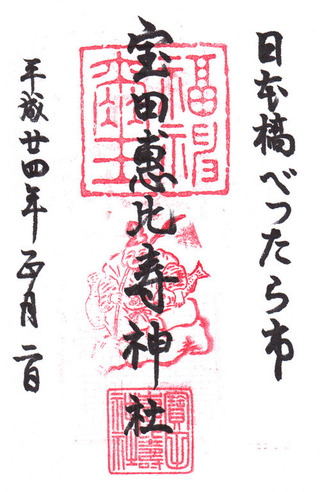 日本橋べったら市
宝田惠比寿神社
平成廿四年正月二日